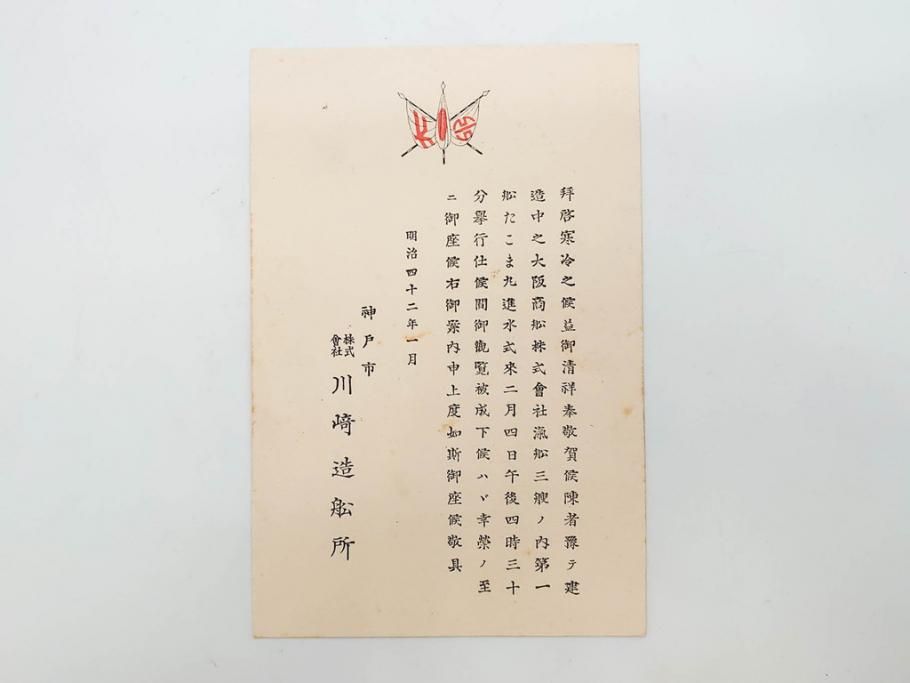 拜啓寒冷之候益御清祥奉敬賀候陳者豫テ建
造中之大阪商船株式會社滊船三艘ノ内第一
船たこま丸進水式來二月四日午後四時三十
分擧行仕候間御觀覽被成下候ハヾ幸榮ノ至
ニ御座候右御案内申上度如斯御座候敬具
明治四十二年一月
神戸市
株式會社川崎造船所